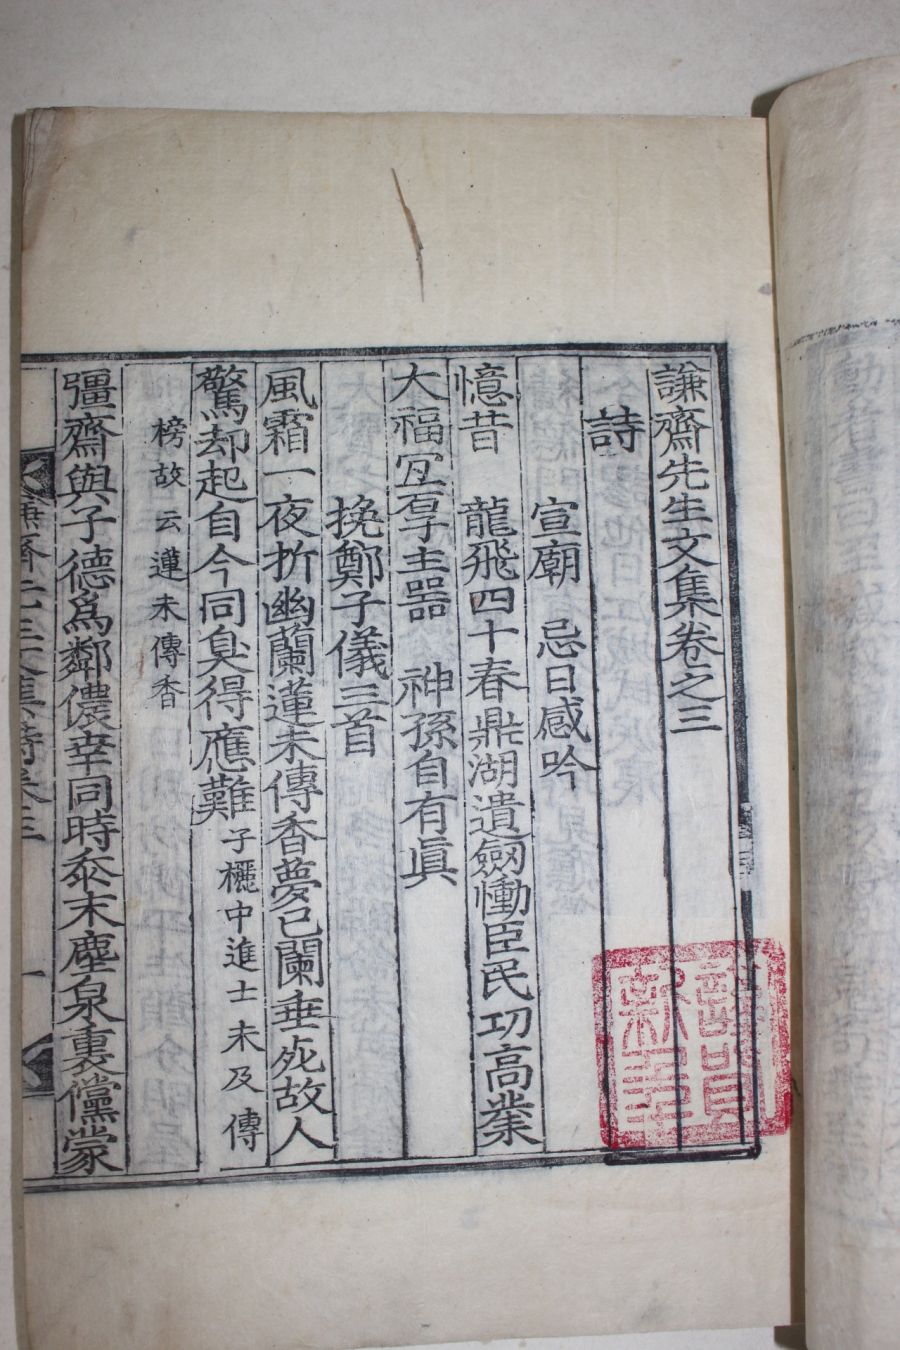 謙齋先生文集卷之三
詩
宣廟 忌日感吟
憶昔 龍飛四十春鼎湖遺劒慟臣民功高業
大福宜享主器 神孫自有眞
挽鄭子儀三首
風霜一夜折幽蘭蓮未傳香夢已闌垂死故人
驚却起自今同臭得應難子櫳中進士未及傳
榜故云蓮未傳香
彊齋與子德爲鄰儂幸同時忝末塵泉裏儻蒙